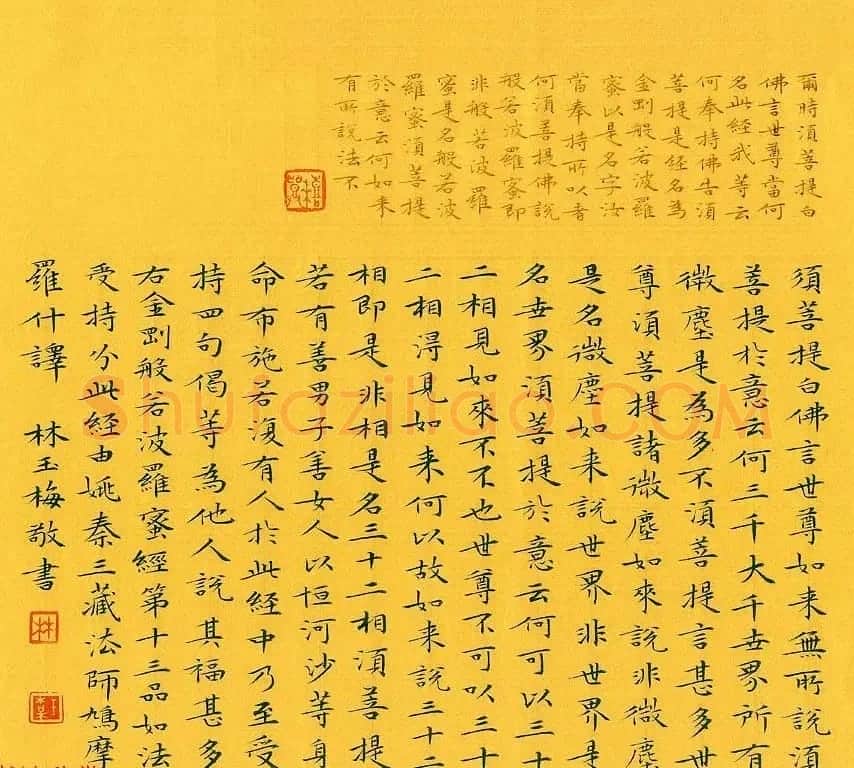 爾時須菩提白
佛言世尊當何
名此經我等云
何奉持佛告須
菩提是經名為
金剛般若波羅
蜜以是名字汝
當奉持所以者
何須菩提佛說
般若波羅蜜即
非般若波羅
蜜是名般若波
羅蜜須菩提
於意云何如来
有所說法不
須菩提白佛言世尊如来無所說須
菩提於意云何三千大千世界所有
微塵是為多不須菩提言甚多世
尊須菩提諸微塵如來說非微塵
是名微塵如来說世界非世界是
名世界須菩提於意云何可以三十
二相見如來不不也世尊不可以三十
二相得見如来何以故如来說三十二
相即是非相是名三十二相須菩提
若有善男子善女人以恒河沙等身
命布施若復有人於此經中乃至受
持四句偈等為他人說其福甚多
右金剛般若波羅蜜經第十三品如法
受持分此經由姚秦三藏法師鳩摩
羅什譯 林玉梅敬書
林
Shufaziliao.COM